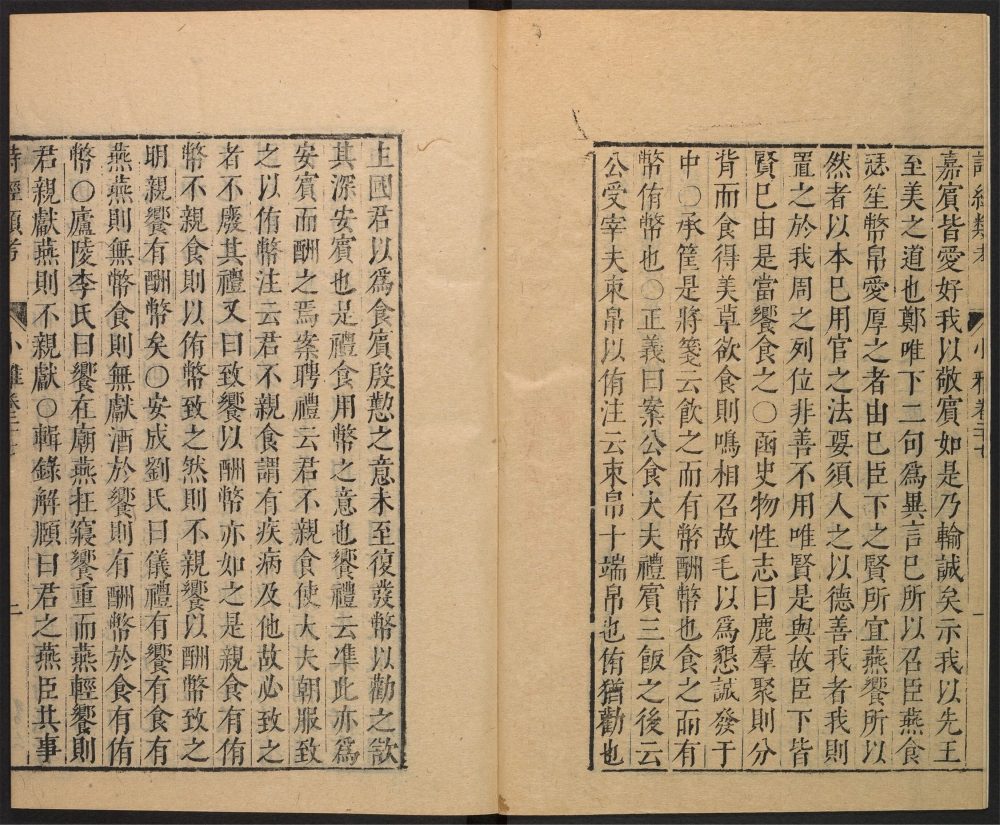 嘉賓皆愛好我以敬賓如是乃輸誠矣示我以先王
至美之道也鄭唯下二句爲異言已所以召臣燕食
瑟笙幣帛愛厚之者由已臣下之賢所宜燕饗所以
然者以本已用官之法要須人之以德善我者我則
置之於我周之列位非善不用唯賢是與故臣下皆
賢已由是當饗食之○函史物性志曰鹿羣聚則分
背而食得美草欲食則鳴相召故毛以爲懇誠發于
中○承筐是將箋云飲之而有幣酬幣也食之而有
幣侑幣也○正義曰案公食大夫禮賓三飯之後云
公受宰夫束帛以侑注云束帛十端帛也侑猶勸也
主國君以爲食賓殷懃之意未至復發幣以勸之欲
其深安賓也是禮食用幣之意也饗禮云準此亦爲
安賓而酬之焉案聘禮云君不親食使大夫朝服致
之以侑幣注云君不親食謂有疾病及他故必致之
者不廢其禮又曰致饗以酬幣亦如之是親食有侑
幣不親食則以侑幣致之然則不親饗以酬幣致之
明親饗有酬幣矣○安成劉氏曰儀禮有饗有食有
燕燕則無幣食則無獻酒於饗則有酬幣於食有侑
幣○廬陵李氏曰饗在廟燕在寢饗重而燕輕饗則
君親獻燕則不親獻○輯錄解頤曰君之燕臣共事
詩經類考 小雅卷二十七 二